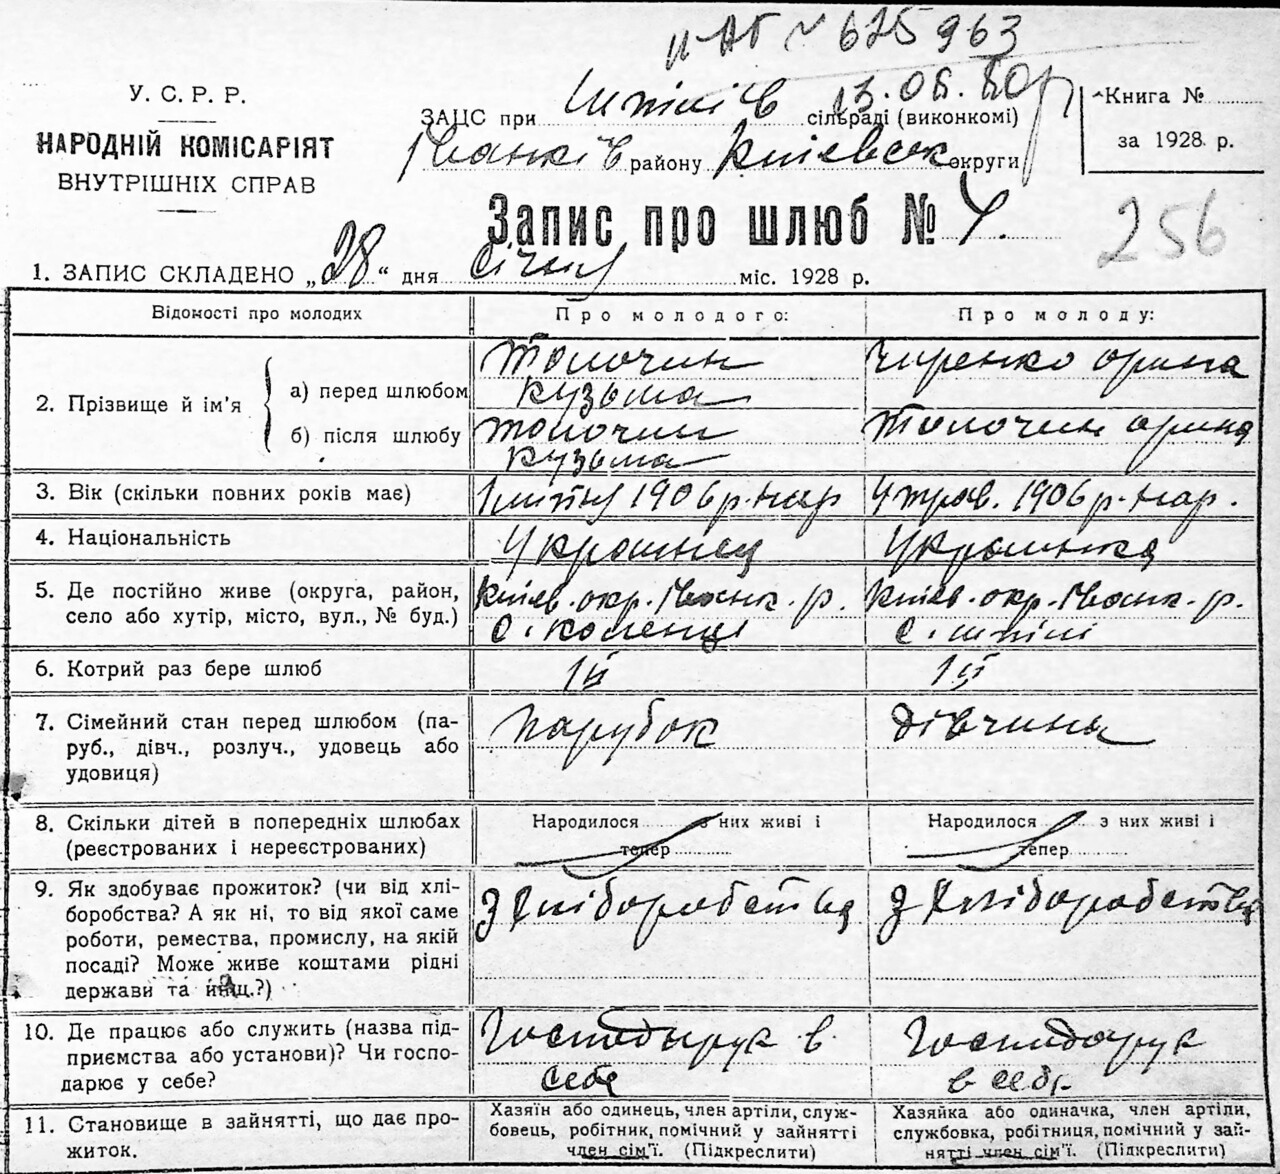 и АГ № 625963
13.06.80р
У. С. Р. Р.
НАРОДНІЙ КОМІСАРІЯТ
ВНУТРІШНІХ СПРАВ
ЗАЦС при Шпілів сільраді (виконкомі)
Іванків району Київськ округи
Книга №
за 1928 р.
Запис про шлюб № 4.
256
1. ЗАПИС СКЛАДЕНО „28“ дня Січня міс. 1928 р.
Відомості про молодих
Про молодого:
Про молоду:
2. Прізвище й ім’я
а) перед шлюбом
Толочин
Кузьма
Чиренко Орина
б) після шлюбу
Толочин
Кузьма
Толочин Орина
3. Вік (скільки повних років має)
1 лютня 1906 р. нар
4 трав. 1906 р. нар.
4. Національність
Українец
Українка
5. Де постійно живе (округа, район,
село або хутір, місто, вул., № буд.)
Київ. окр. Іванк. р.
с. Коленці
Київ. окр. Іванк. р.
с. Шпілі
6. Котрий раз бере шлюб
1й
1й
7. Сімейний стан перед шлюбом (па-
руб., дівч., розлуч., удовець або
удовиця)
Парубок
Дівчина
8. Скільки дітей в попередніх шлюбах
(реєстрованих і нереєстрованих)
Народилося з них живі і
тепер
Народилося з них живі і
тепер
9. Як здобуває прожиток? (чи від хлі-
боробства? А як ні, то від якої саме
роботи, ремества, промислу, на якій
посаді? Може живе коштами рідні
держави та инш.?)
З Хліборобства
З Хліборобства
10. Де працює або служить (назва під-
приємства або установи)? Чи госпо-
дарює у себе?
Господарук в
себе
Господарук
в себе
11. Становище в зайнятті, що дає про-
житок.
Хазяїн або одинець, член артіли, служ-
бовець, робітник, помічний у зайнятті
член сім’ї. (Підкреслити)
Хазяйка або одиначка, член артіли,
службовка, робітниця, помічний у зай-
нятті член сім’ї. (Підкреслити)